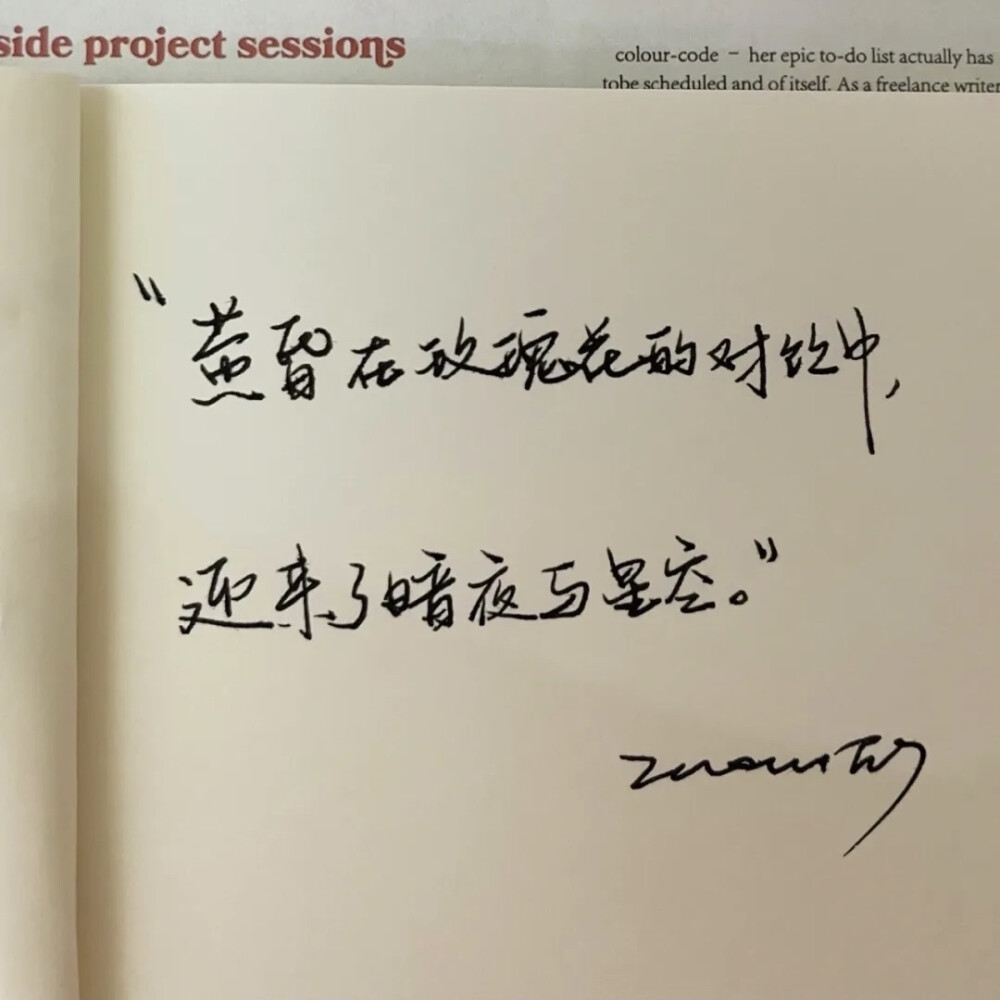 side project sessions
colour-code – her epic to-do list actually has
tobe scheduled and of itself. As a freelance writer
"黄昏在玫瑰花的对饮中,
迎来了暗夜与星空。"